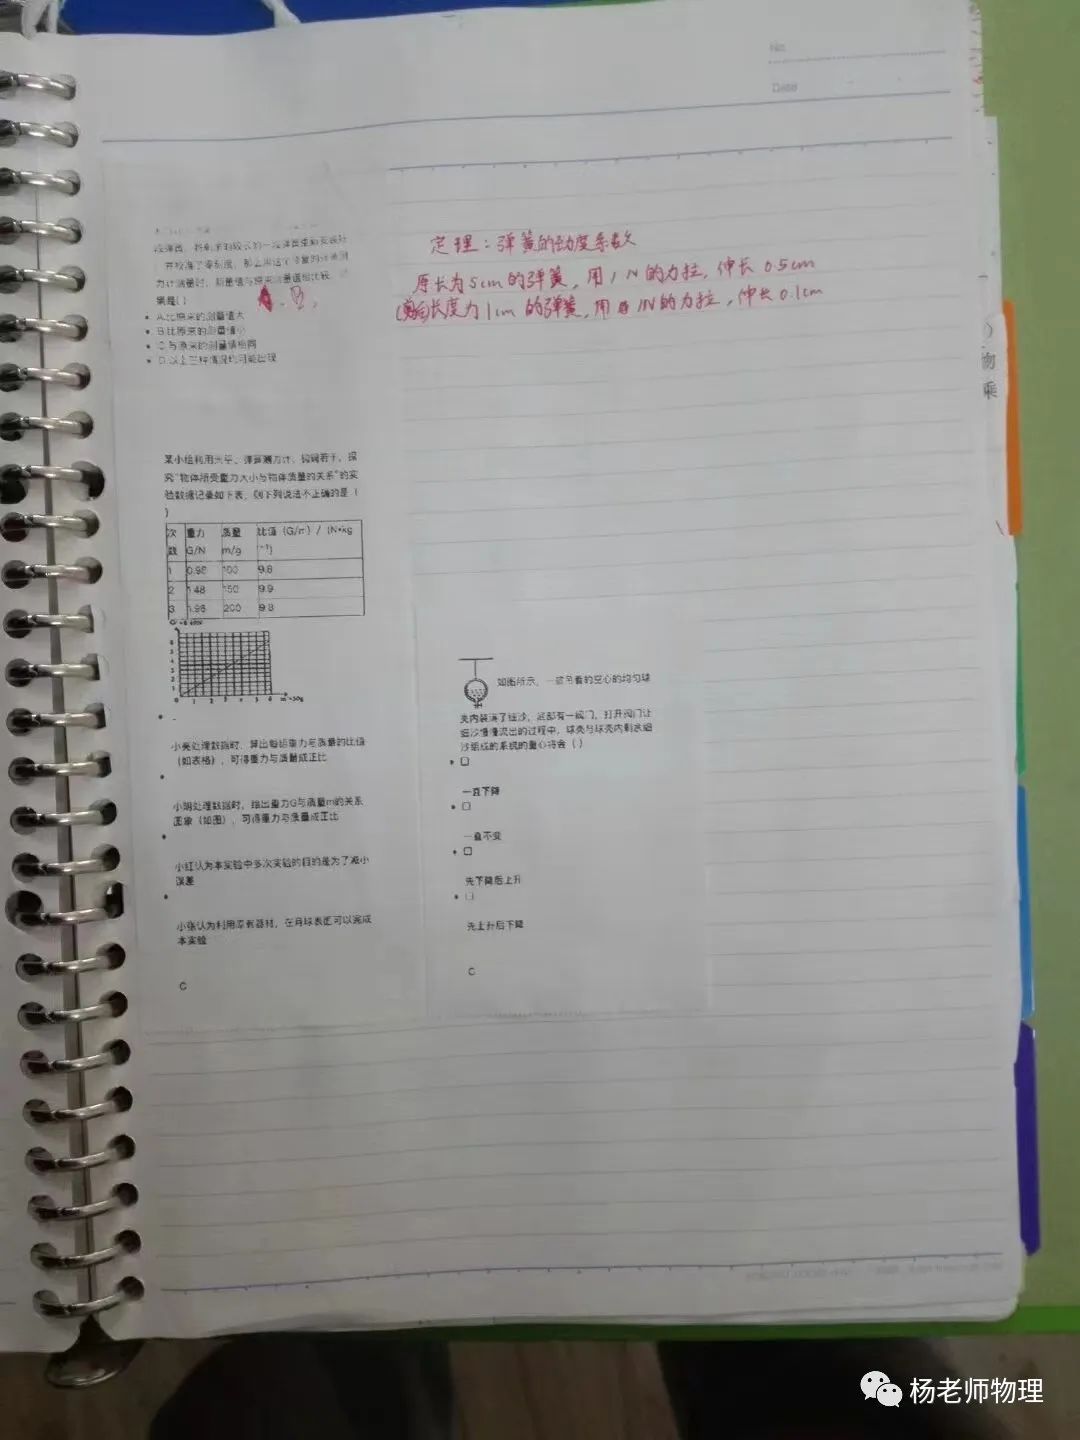 No
Date
定理：弹簧的劲度系数
原长为5cm的弹簧，用1N的力拉，伸长0.5cm
长度为1cm的弹簧，用1N的力拉，伸长0.1cm
段弹簧，将剩余的较长的一段弹簧重新安装好
，并校准了零刻度，那么用这个
力计测量时，测量值与原来测量值相比较，
果是( )
B
A.比原来的测量值大
B.比原来的测量值小
C.与原来的测量值相同
D.以上三种情况均可能出现
某小组利用天平、弹簧测力计、钩码若干，探
究“物体所受重力大小与物体质量的关系”的实
验数据记录如下表，则下列说法不正确的是（
）
次数 重力G/N 质量m/g 比值（G/m）/（N•kg⁻¹）
1 0.98 100 9.8
2 1.48 150 9.9
3 1.96 200 9.8
小亮处理数据时，算出每组重力与质量的比值
（如表格），可得重力与质量成正比
小明处理数据时，绘出重力G与质量m的关系
图象（如图），可得重力与质量成正比
小红认为本实验中多次实验的目的是为了减小
误差
小张认为利用原有器材，在月球表面可以完成
本实验
C
如图所示，一被吊着的空心的均匀球
壳内装满了细沙，底部有一阀门，打开阀门让
细沙慢慢流出的过程中，球壳与球壳内剩余细
沙组成的系统的重心将会（ ）
一直下降
一直不变
先下降后上升
先上升后下降
C
物
乘
杨老师物理